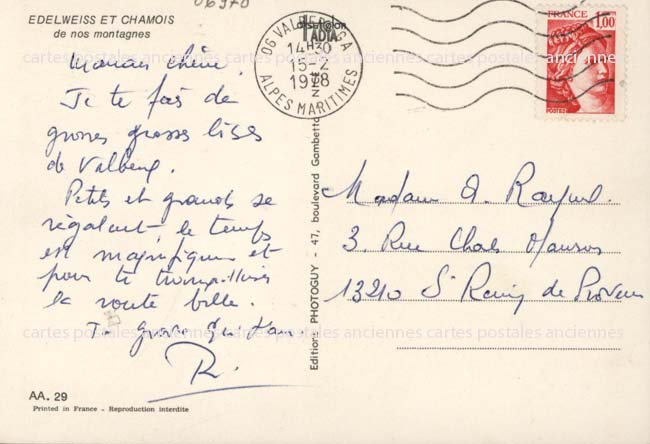 06970
EDELWEISS ET CHAMOIS
de nos montagnes
Maman chérie.
Je te fais de
grosses grosses bises
de Valberg.
Petits et grands se
régalent, le temps
est magnifique et
pour te
la route belle.
Ta grosse
R.
AA. 29
Printed in France - Reproduction interdite
Editions PHOTOGUY - 47, boulevard Gambetta NICE
06 VALBERG
14H30
15-2
1978
ALPES MARITIMES
FRANCE
1,00
POSTES
Madame A.
3. Rue
13210 St Remy de Provence
cartes postales anciennes cartes postales anciennes cartes postales anciennes